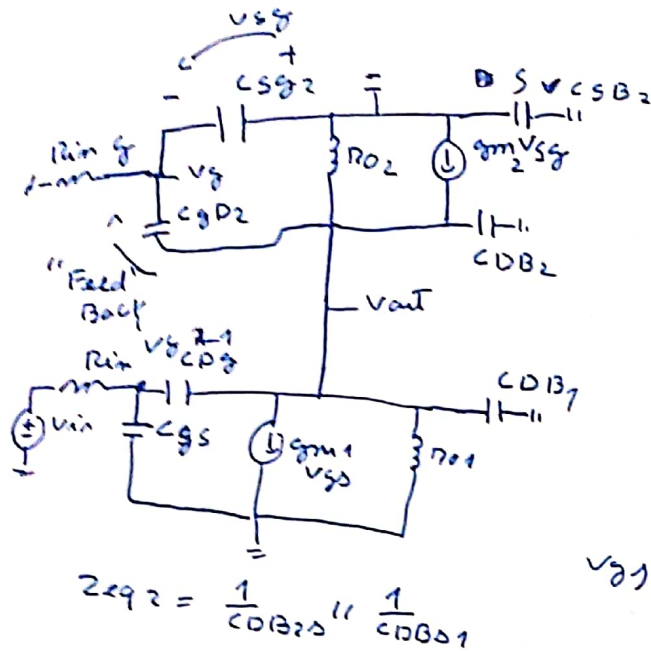 vsg
- +
Csg2
D S CSB2
Rin g
vg
RO2
gm2 vsg
CgD2
CDB2
"Feed"
Back
Vout
Rin
CDB1
vin
Cgs
gm1
vgs
Ro1
Zeq2 = 1/CDB2s || 1/CDBs1
vg1